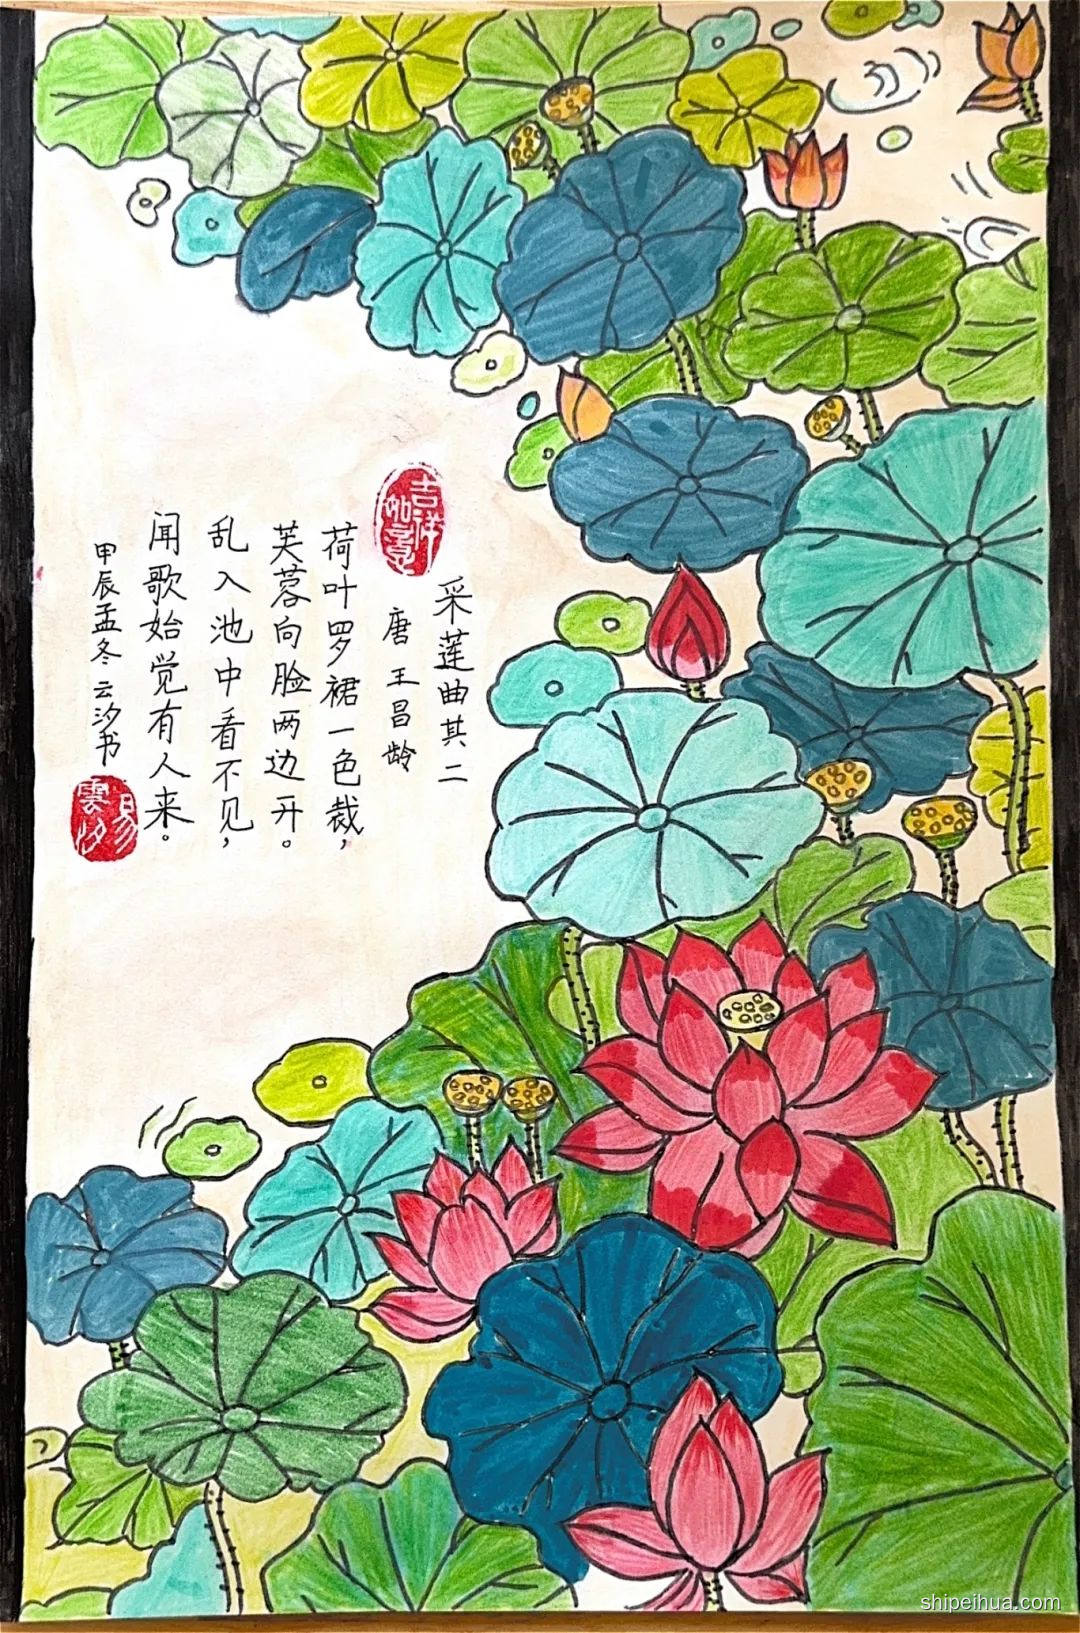 吉祥
如意
采莲曲其二
唐 王昌龄
荷叶罗裙一色裁，
芙蓉向脸两边开。
乱入池中看不见，
闻歌始觉有人来。
甲辰孟冬 云汐书
易
雲汐
shipeihua.com